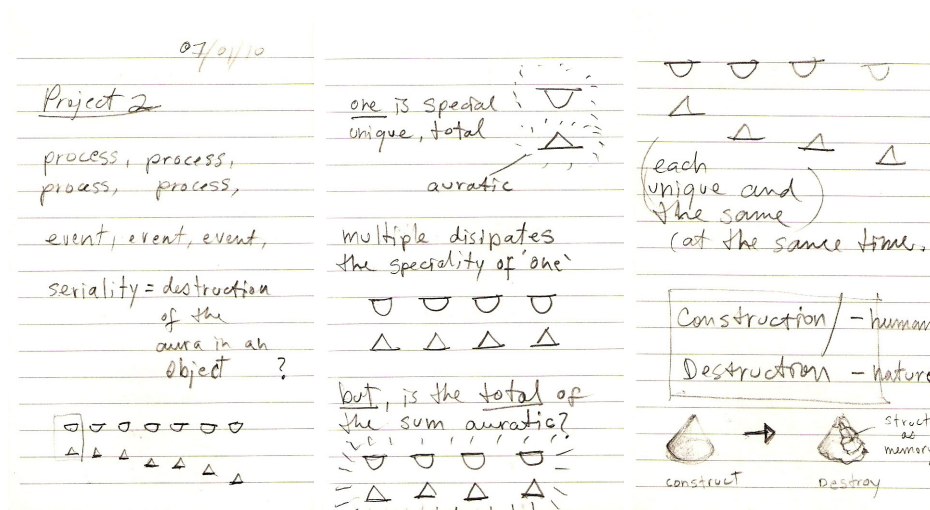 07/01/10
Project 2
process, process,
process, process,
event, event, event,
seriality = destruction
of the
aura in an
object ?
one is special
unique, total
auratic
multiple disipates
the speciality of 'one'
but, is the total of
the sum auratic?
(each
unique and)
the same
(at the same time.
Construction / - human
Destruction - nature
struct
as
memory
construct
Destroy